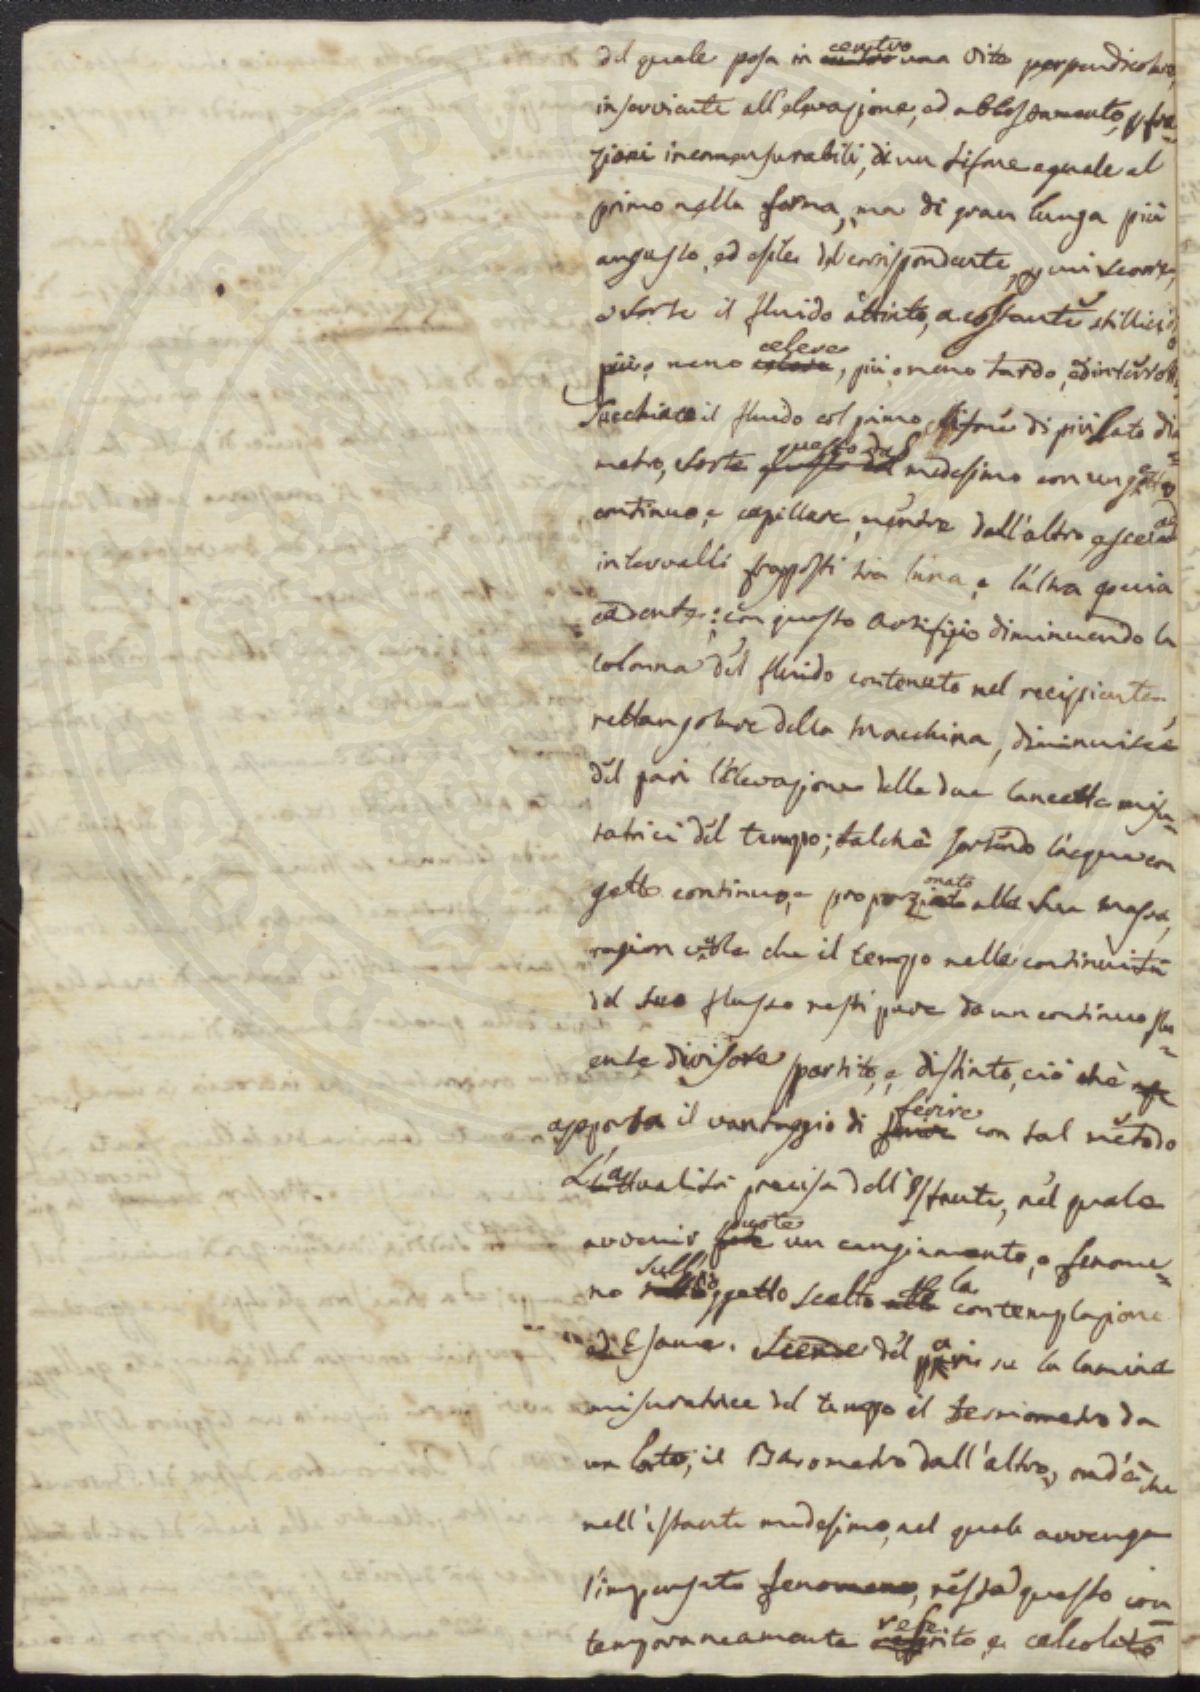 del quale posa in centro una vite perpendicolare,
inserviente all'elevazione, ed abbassamento, p fra=
zioni incommensurabili, di un sifone eguale al
primo nella forma, ma di gran lunga più
angusto, ed esile del corrispondente, p cui scorre,
e sorte il fluido attinto, a costante stillicidio
più, o meno celere, più, o meno tardo, ed intervalli.
Succhiato il fluido col primo sifone di più lato dia=
metro, sorte questo dal medesimo con un getto
continuo, e capillare, mentre dall'altro esce ad
intervalli frapposti tra l'una, e l'altra goccia
cadente: con questo artifizio diminuendo la
colonna del fluido contenuto nel recipiente
rettangolare della Macchina, diminuisce
del pari l'Elevazione delle due lancette misu=
ratrici del tempo; talchè sortendo l'acqua con
getto continuo, e proporzionato alla sua massa,
ragion vuole che il tempo nella continuità
del suo flusso resti pure da un continuo flu=
ente divisore partito, e distinto, ciò che
apporta il vantaggio di ferire con tal metodo
L'attualità precisa dell'Istante, nel quale
avvenir puote un cangiamento, o fenome=
no sull'oggetto scelto alla contemplazione
ed Esame. Scende del pari su la lamina
misuratrice del tempo il Termometro da
un lato, il Barometro dall'altro, ond'è che
nell'istante medesimo, nel quale avvenga
l'impensato fenomeno, resta questo con=
temporaneamente riferito, e calcolato